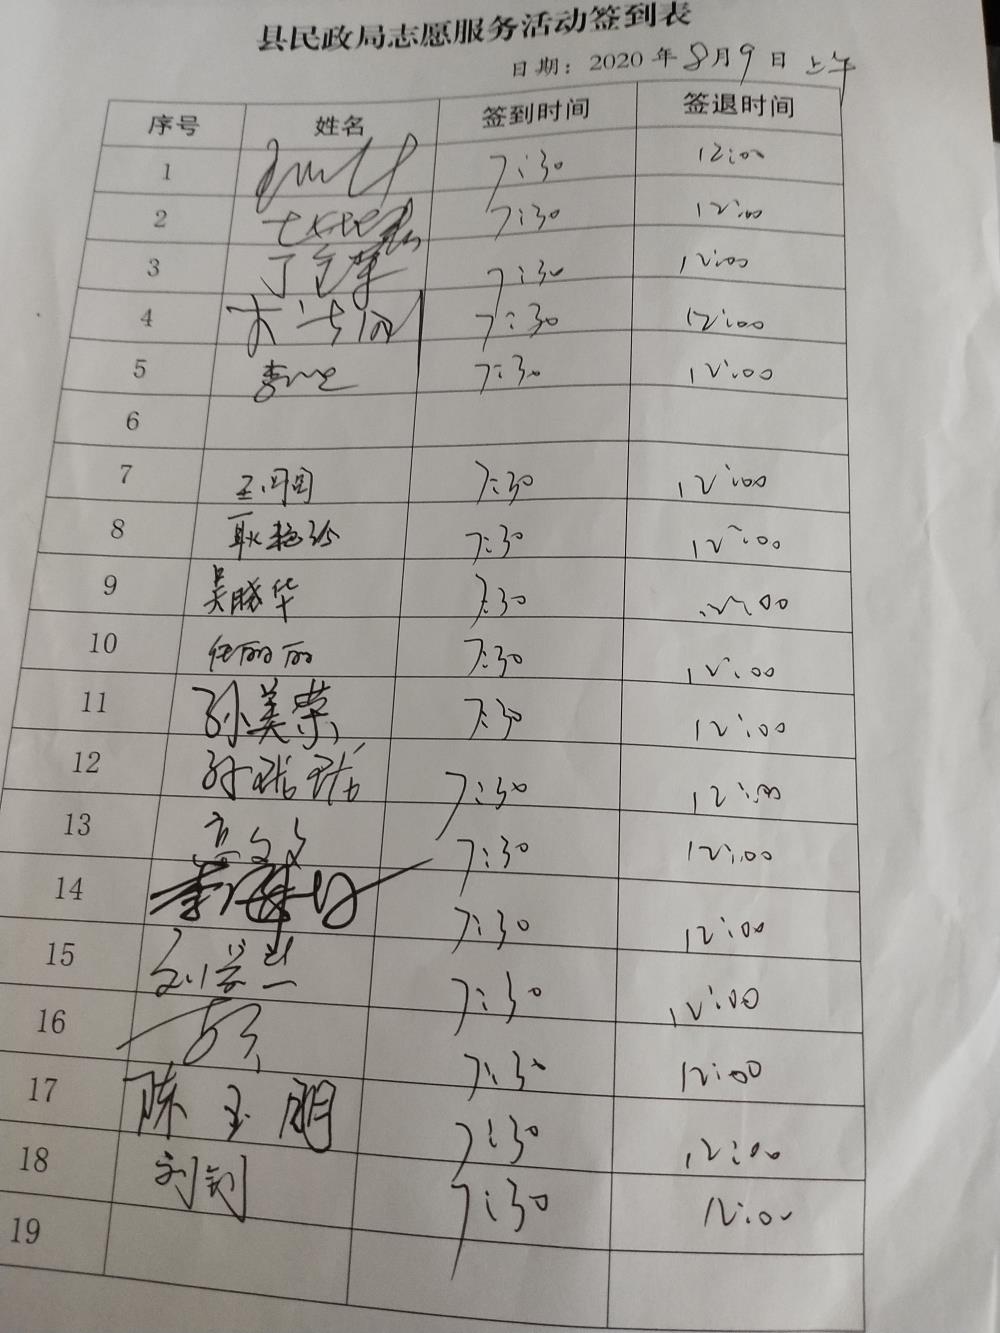 县民政局志愿服务活动签到表
日期：2020年8月9日 上午
序号 姓名 签到时间 签退时间
1 7:30 12:00
2 7:30 12:00
3 7:30 12:00
4 7:30 12:00
5 7:30 12:00
6
7 7:30 12:00
8 耿艳玲 7:30 12:00
9 吴胜华 7:30 12:00
10 任丽丽 7:30 12:00
11 孙美荣 7:30 12:00
12 孙 7:30 12:00
13 7:30 12:00
14 李 7:30 12:00
15 7:30 12:00
16 7:30 12:00
17 陈玉明 7:30 12:00
18 刘钊 7:30 12:00
19